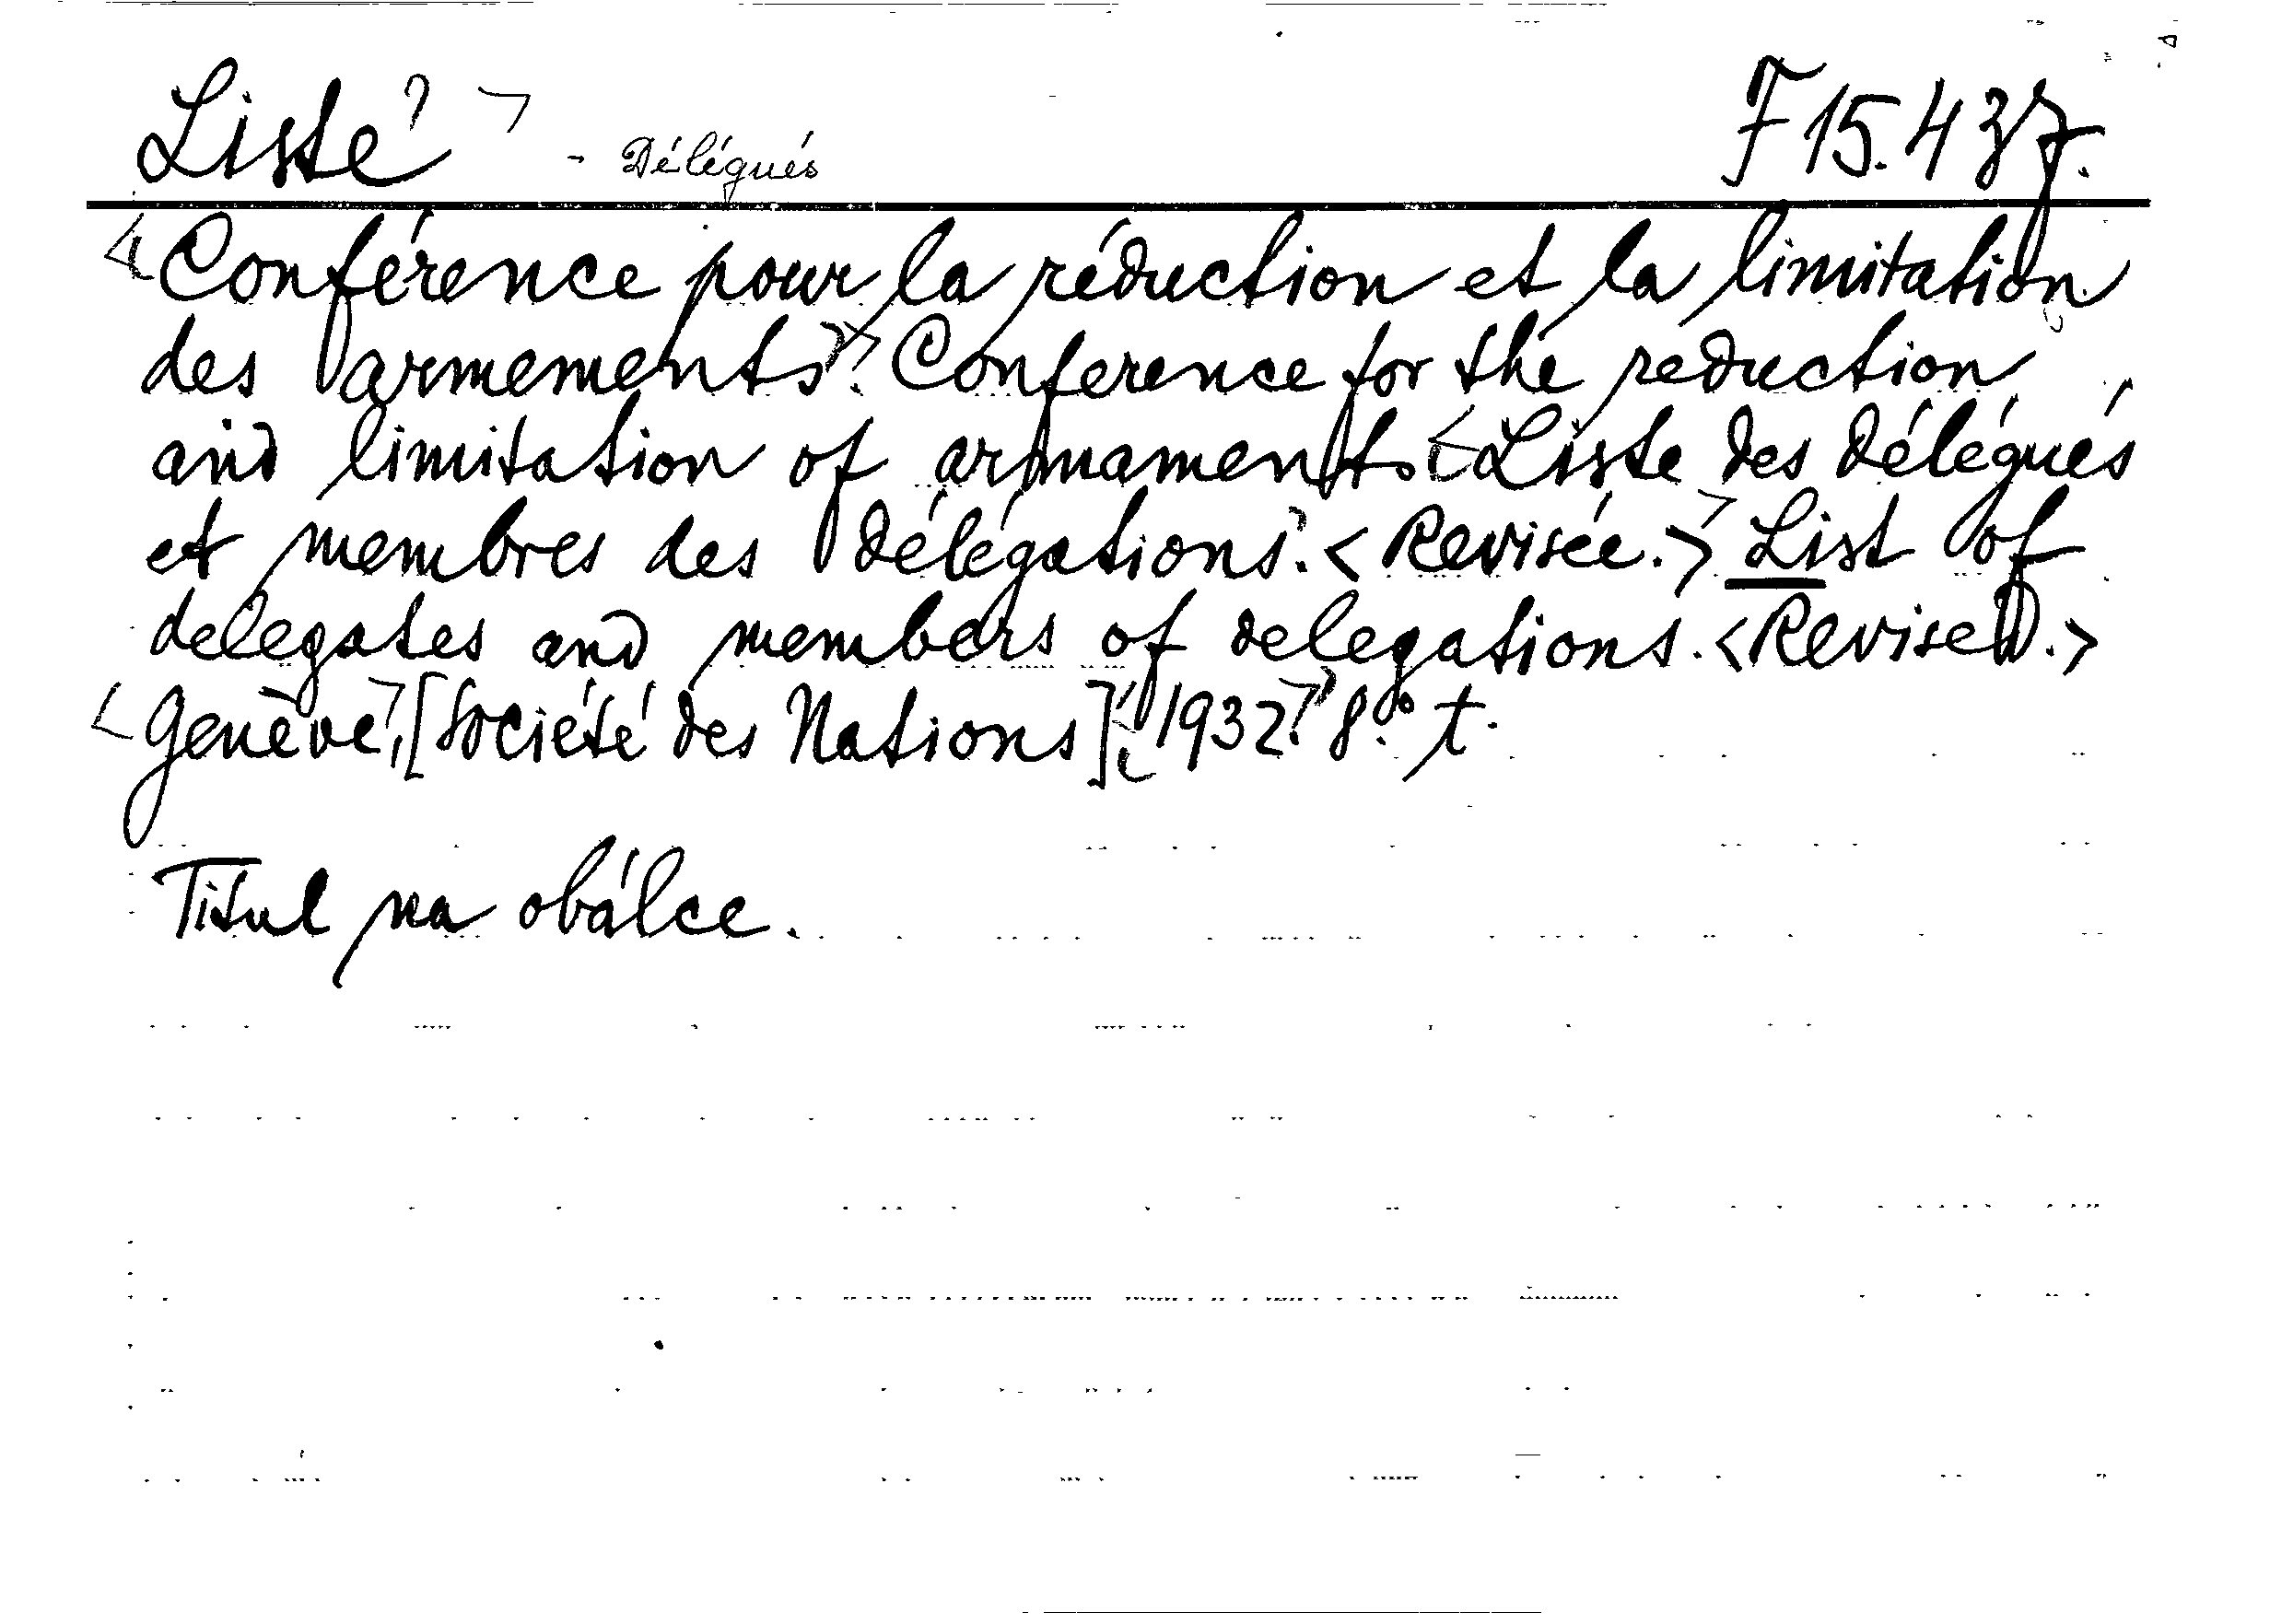 Liste - Délégués F 15.437.
Conférence pour la réduction et la limitation
des armements. Conference for the reduction
and limitation of armaments. Liste des délégués
et membres des délégations. <Revisée.> List of
delegates and members of delegations. <Revised.>
Genève, [Société des Nations], 1932. 8° t.
Titul na obálce.